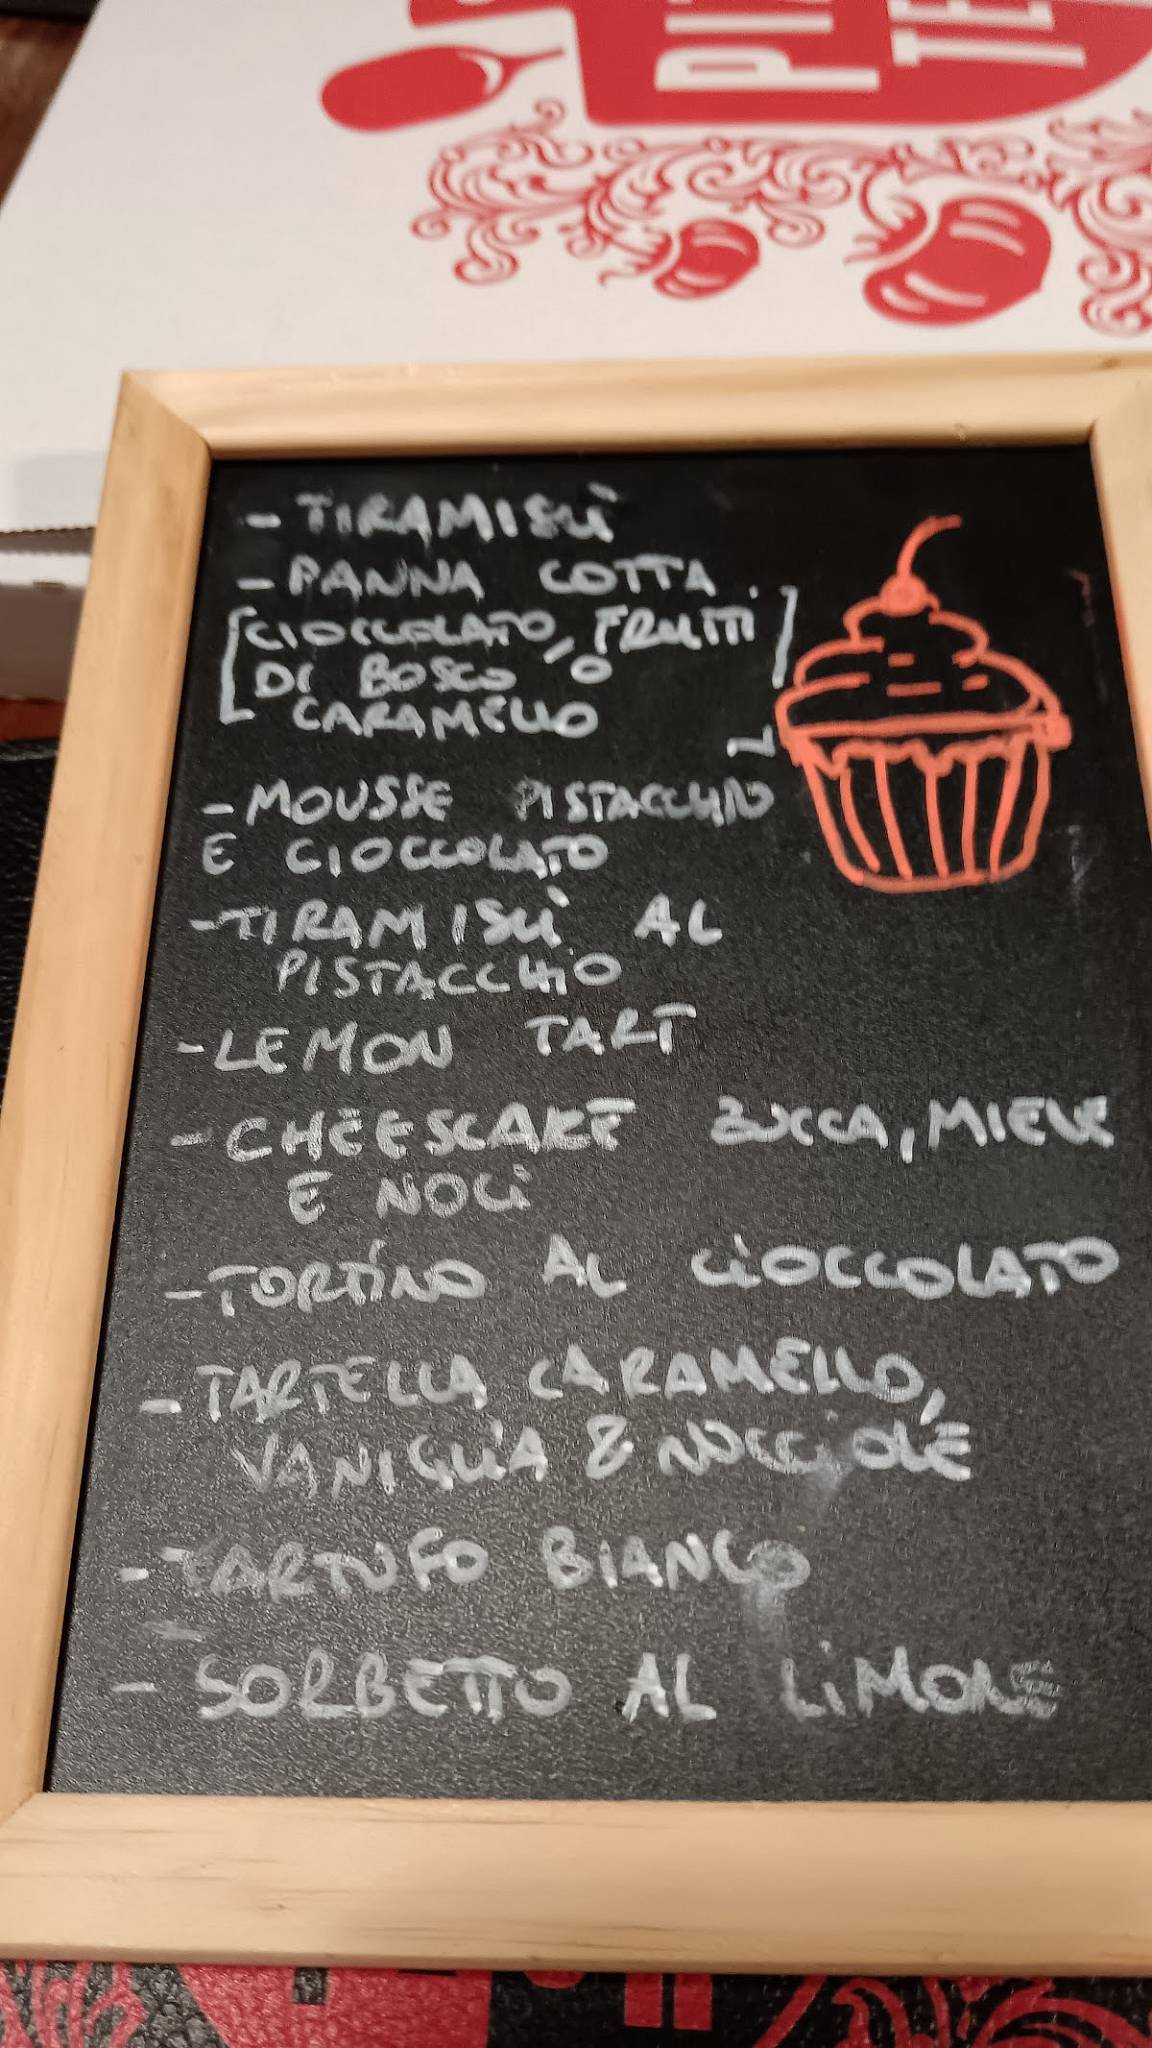 - TIRAMISÙ
- PANNA COTTA
[CIOCCOLATO, FRUTTI
DI BOSCO O
CARAMELLO]
- MOUSSE PISTACCHIO
E CIOCCOLATO
- TIRAMISÙ AL
PISTACCHIO
- LEMON TART
- CHEESCAKE ZUCCA, MIELE
E NOCI
- TORTINO AL CIOCCOLATO
- TARTELLA CARAMELLO,
VANIGLIA & NOCCIOLE
- TARTUFO BIANCO
- SORBETTO AL LIMONE